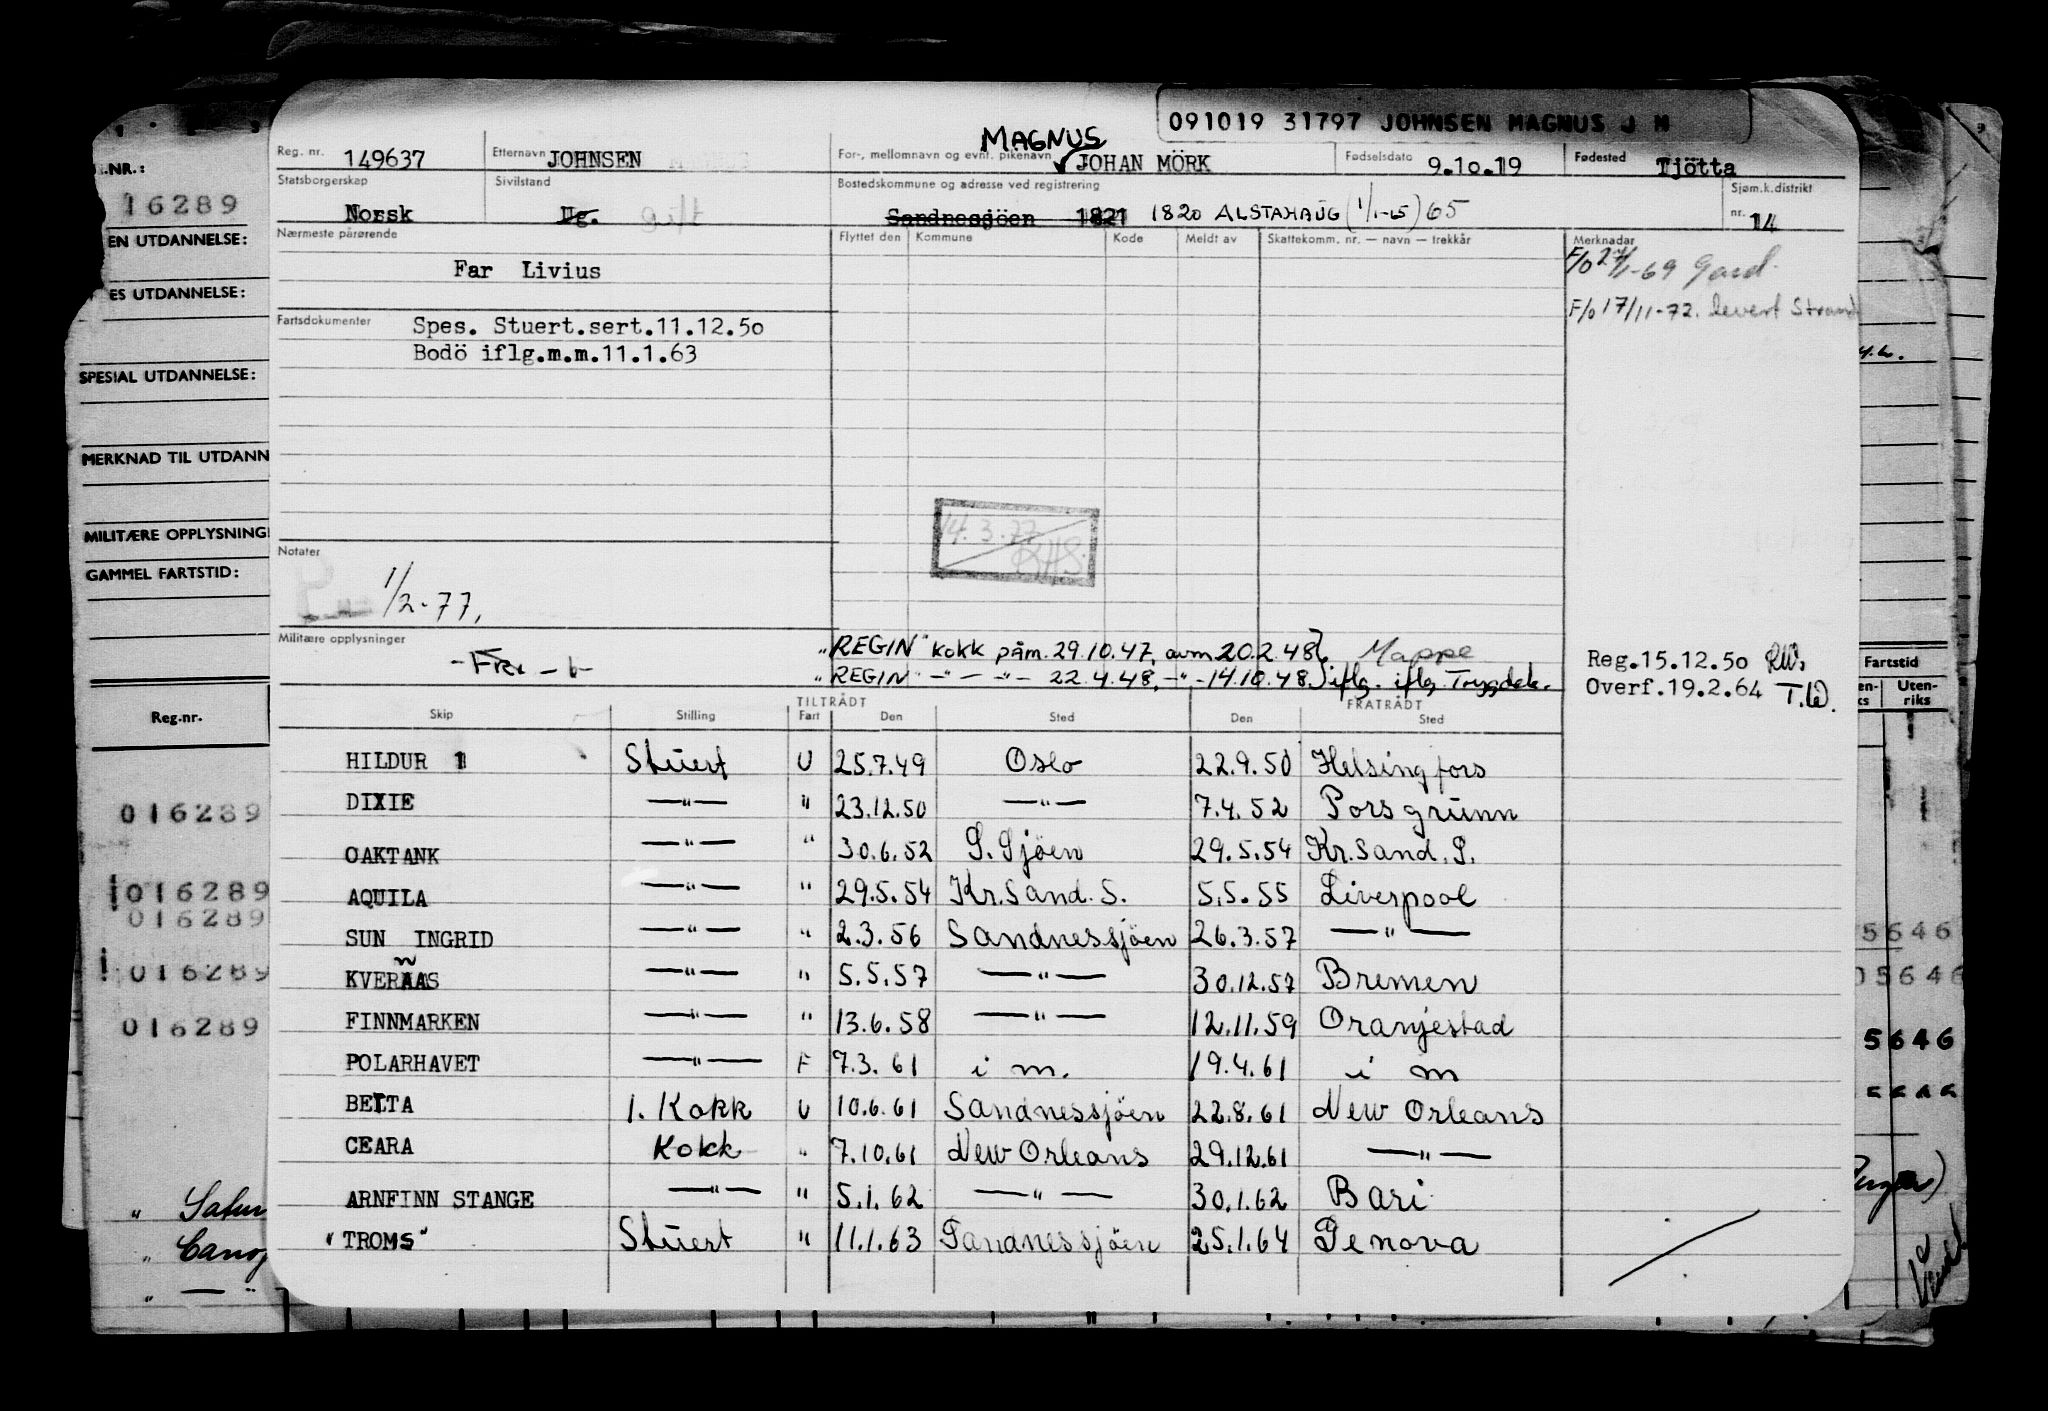 091019 31797 JOHNSEN MAGNUS J M
MAGNUS
Reg. nr. 149637 Etternavn JOHNSEN For-, mellomnavn og evnt. pikenavn JOHAN MÖRK Fødselsdato 9.10.19 Fødested Tjötta
Statsborgerskap Norsk Sivilstand Ug. gift Bostedskommune og adresse ved registrering Sandnessjöen 1821 1820 ALSTAHAUG (1/1-65) 65 Sjøm.k.distrikt nr. 14
Nærmeste pårørende Flyttet den Kommune Kode Meldt av Skattekomm. nr. — navn — trekkår Merknader
Far Livius
F/o 2 -69 Gard.
F/o 17/11-72. levert Strand
Fartsdokumenter Spes. Stuert.sert.11.12.50
Bodö iflg.m.m.11.1.63
14.3.77
RHS.
Notater
1/2-77.
Militære opplysninger
"REGIN" kokk påm. 29.10.47, avm 20.2.48 } Mappe
"REGIN" —"— —"— 22.4.48, —"— 14.10.48 } iflg. iflg Trygdek.
Reg.15.12.50 RW.
Overf.19.2.64 T.W.
TILTRÅDT FRATRÅDT
Skip Stilling Fart Den Sted Den Sted
HILDUR 1 Stuert U 25.7.49 Oslo 22.9.50 Helsingfors
DIXIE —"— " 23.12.50 —"— 7.4.52 Porsgrunn
OAKTANK —"— " 30.6.52 S.Sjöen 29.5.54 Kr.Sand.S.
AQUILA —"— " 29.5.54 Kr.Sand.S. 5.5.55 Liverpool
SUN INGRID —"— " 2.3.56 Sandnessjöen 26.3.57 —"—
KVERNAAS —"— " 5.5.57 —"— 30.12.57 Bremen
FINNMARKEN —"— " 13.6.58 —"— 12.11.59 Oranjestad
POLARHAVET —"— F 7.3.61 i m. 19.4.61 i m
BELTA 1. Kokk U 10.6.61 Sandnessjöen 22.8.61 New Orleans
CEARA Kokk " 7.10.61 New Orleans 29.12.61 —"—
ARNFINN STANGE —"— " 5.1.62 —"— 30.1.62 Bari
"TROMS" Stuert " 11.1.63 Sandnessjöen 25.1.64 Genova
.NR.:
16289
EN UTDANNELSE:
ES UTDANNELSE:
SPESIAL UTDANNELSE:
MERKNAD TIL UTDANN
MILITÆRE OPPLYSNING
GAMMEL FARTSTID:
Reg.nr.
016289
016289
016289
016289
016289
" Satur
" Canop
" — "
Fartstid
en- ks Uten- riks
5646
05646
5646